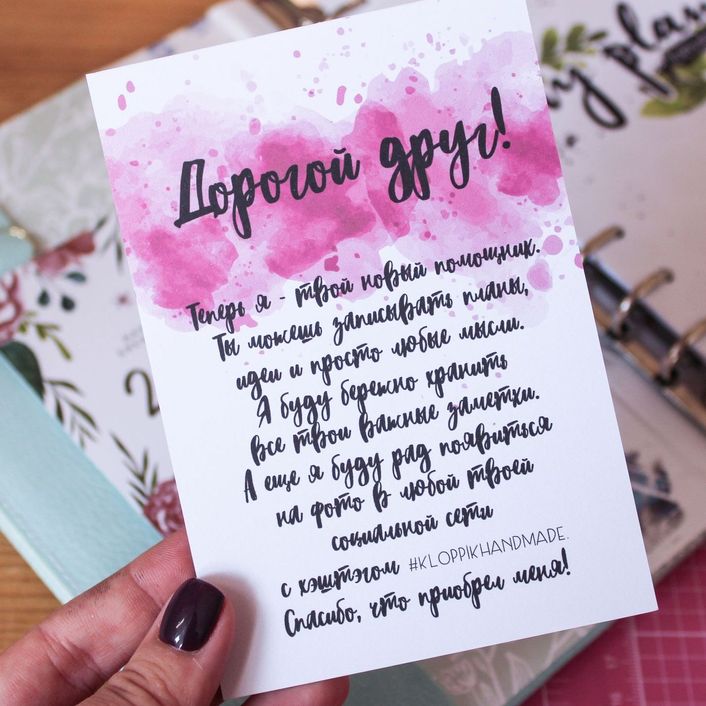 Дорогой друг!
Теперь я - твой новый помощник.
Ты можешь записывать планы,
идеи и просто любые мысли.
Я буду бережно хранить
все твои важные заметки.
А еще я буду рад появиться
на фото в любой твоей
социальной сети
с хэштэгом #KLOPPIKHANDMADE.
Спасибо, что приобрел меня!
my plan
2